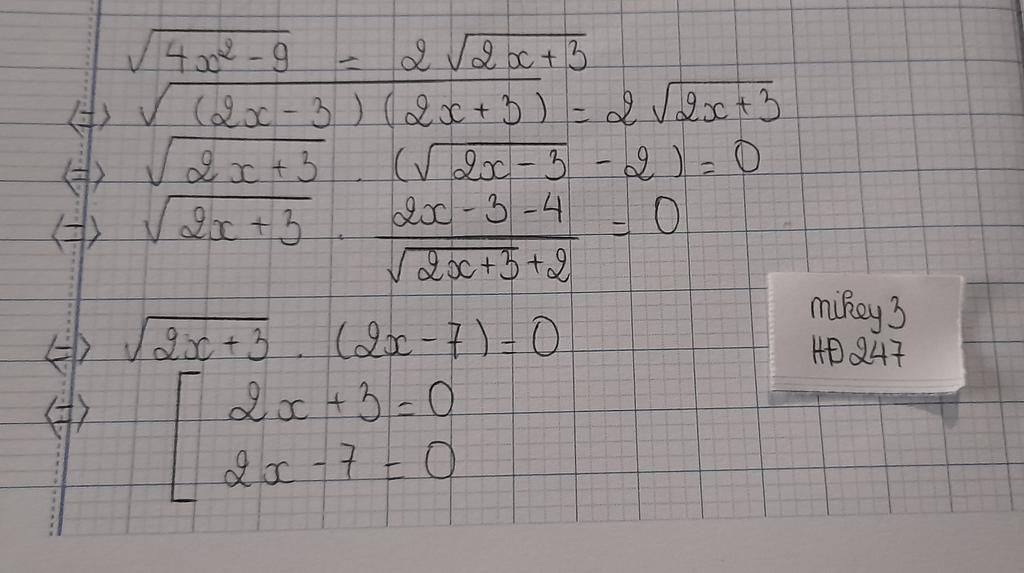 √(4x² - 9) = 2√(2x + 3)
⇔ √((2x - 3)(2x + 3)) = 2√(2x + 3)
⇔ √(2x + 3) . (√(2x - 3) - 2) = 0
⇔ √(2x + 3) . (2x - 3 - 4)/(√(2x + 3) + 2) = 0
⇔ √(2x + 3) . (2x - 7) = 0
⇔ [ 2x + 3 = 0
2x - 7 = 0
mikey 3
HĐ 247